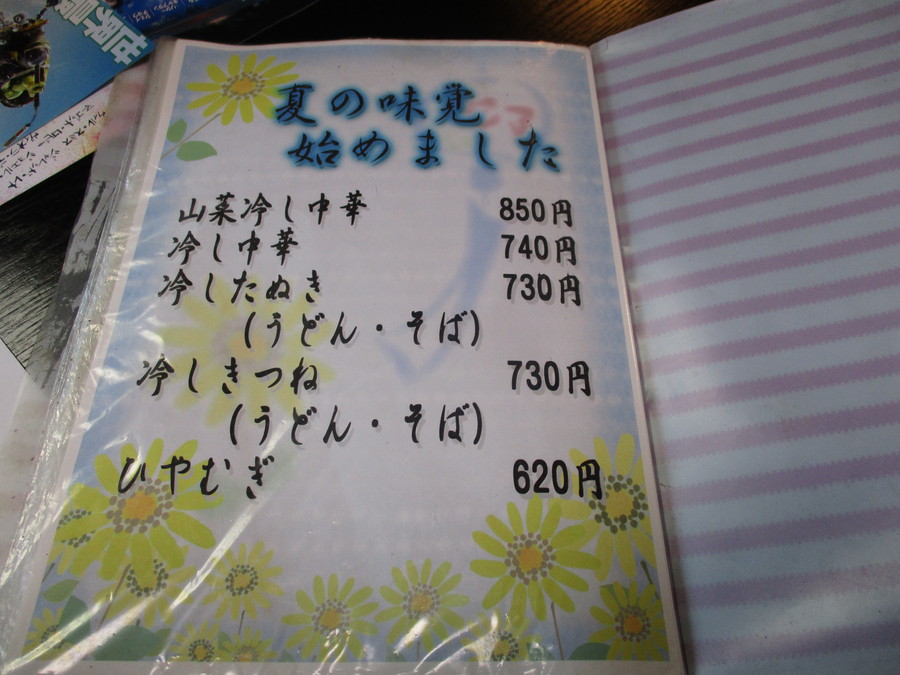 夏の味覚
始めました
山菜冷し中華 850円
冷し中華 740円
冷したぬき 730円
(うどん・そば)
冷しきつね 730円
(うどん・そば)
ひやむぎ 620円